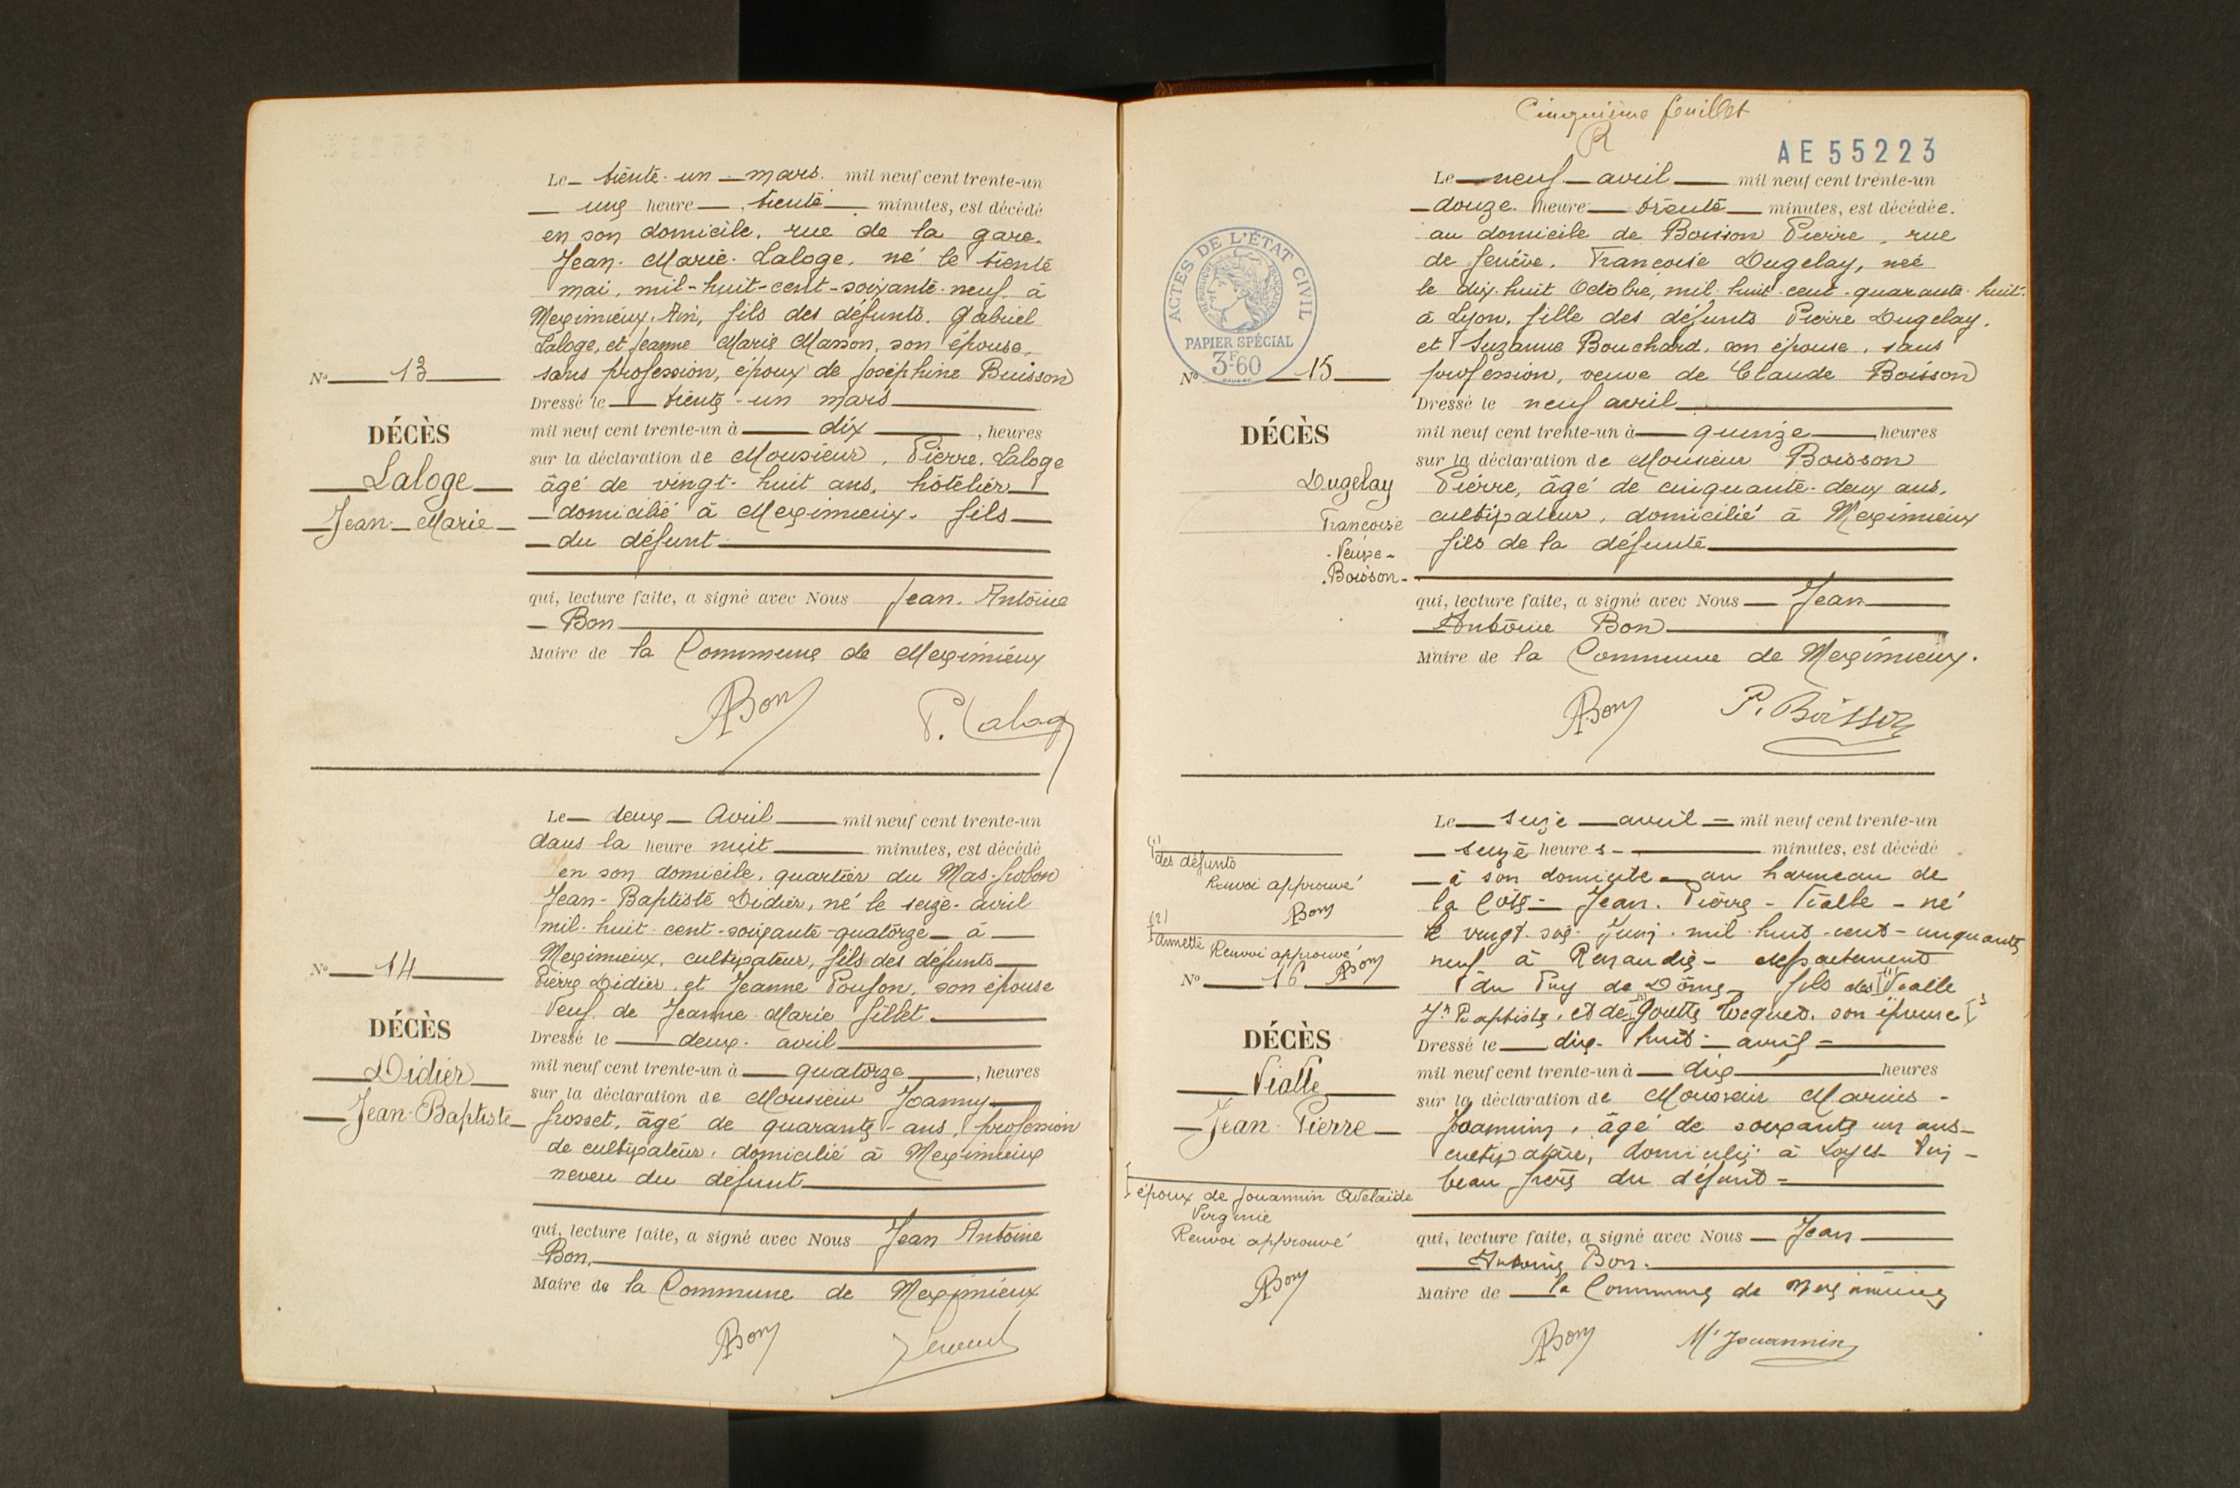 Le trente-un mars mil neuf cent trente-un
une heure trente minutes, est décédé
en son domicile, rue de la gare.
Jean-Marie Laloge, né le trente
mai, mil-huit-cent-soixante-neuf à
Meximieux, Ain, fils des défunts Gabriel
Laloge, et Jeanne Marie Masson, son épouse,
sans profession, époux de Joséphine Buisson
Dressé le trente-un mars
mil neuf cent trente-un à dix, heures
sur la déclaration de Monsieur Pierre Laloge
âgé de vingt-huit ans, hôtelier
domicilié à Meximieux. fils
du défunt
qui, lecture faite, a signé avec Nous Jean-Antoine
Bon
Maire de la Commune de Meximieux
ABon P. Laloge
No 13
DÉCÈS
Laloge
Jean-Marie
Le deux Avril mil neuf cent trente-un
dans la heure nuit minutes, est décédé
en son domicile, quartier du Mas
Jean-Baptiste Didier, né le seize avril
mil-huit-cent-soixante-quatorze à
Meximieux, cultivateur, fils des défunts
Pierre Didier, et Jeanne son épouse
Veuf de Jeanne Marie Gillet
Dressé le deux avril
mil neuf cent trente-un à quatorze, heures
sur la déclaration de Monsieur Joanny
Grosset, âgé de quarante-ans, profession
de cultivateur, domicilié à Meximieux
neveu du défunt
qui, lecture faite, a signé avec Nous Jean Antoine
Bon,
Maire de la Commune de Meximieux
ABon
No 14
DÉCÈS
Didier
Jean-Baptiste
Cinquième feuillet
R
AE 55223
ACTES DE L'ÉTAT CIVIL
PAPIER SPÉCIAL
3F60
Le neuf avril mil neuf cent trente-un
douze heure trente minutes, est décédée.
au domicile de Boisson Pierre, rue
de Genève, Françoise Dugelay, née
le dix-huit Octobre, mil-huit-cent-quarante-huit.
à Lyon, fille des défunts Pierre Dugelay,
et Suzanne Bouchard, son épouse, sans
profession, veuve de Claude Boisson
Dressé le neuf avril
mil neuf cent trente-un à quinze heures
sur la déclaration de Monsieur Boisson
Pierre, âgé de cinquante-deux ans,
cultivateur, domicilié à Meximieux
fils de la défunte
qui, lecture faite, a signé avec Nous Jean
Antoine Bon
Maire de la Commune de Meximieux.
ABon P. Boisson
No 15
DÉCÈS
Dugelay
Françoise
Veuve
Boisson
Le seize avril mil neuf cent trente-un
seize heures minutes, est décédé
à son domicile au hameau de
la Côte Jean-Pierre Vialle né
le vingt-six Juin mil huit-cent-cinquante
neuf à département
du Puy de Dôme fils des (1) Vialle
Jn Baptiste, et de (2) Goutte son épouse
Dressé le dix-huit avril
mil neuf cent trente-un à dix heures
sur la déclaration de Monsieur Marius
Jouannin, âgé de soixante un ans
cultivateur, domicilié à Loyes Ain
beau frère du défunt
qui, lecture faite, a signé avec Nous Jean
Antoine Bon.
Maire de la Commune de Meximieux
ABon Ms Jouannin
(1)
des défunts
Renvoi approuvé
Bon
(2)
Annette Renvoi approuvé
Bon
No 16
DÉCÈS
Vialle
Jean-Pierre
époux de Jouannin Adelaïde
Virginie
Renvoi approuvé
ABon